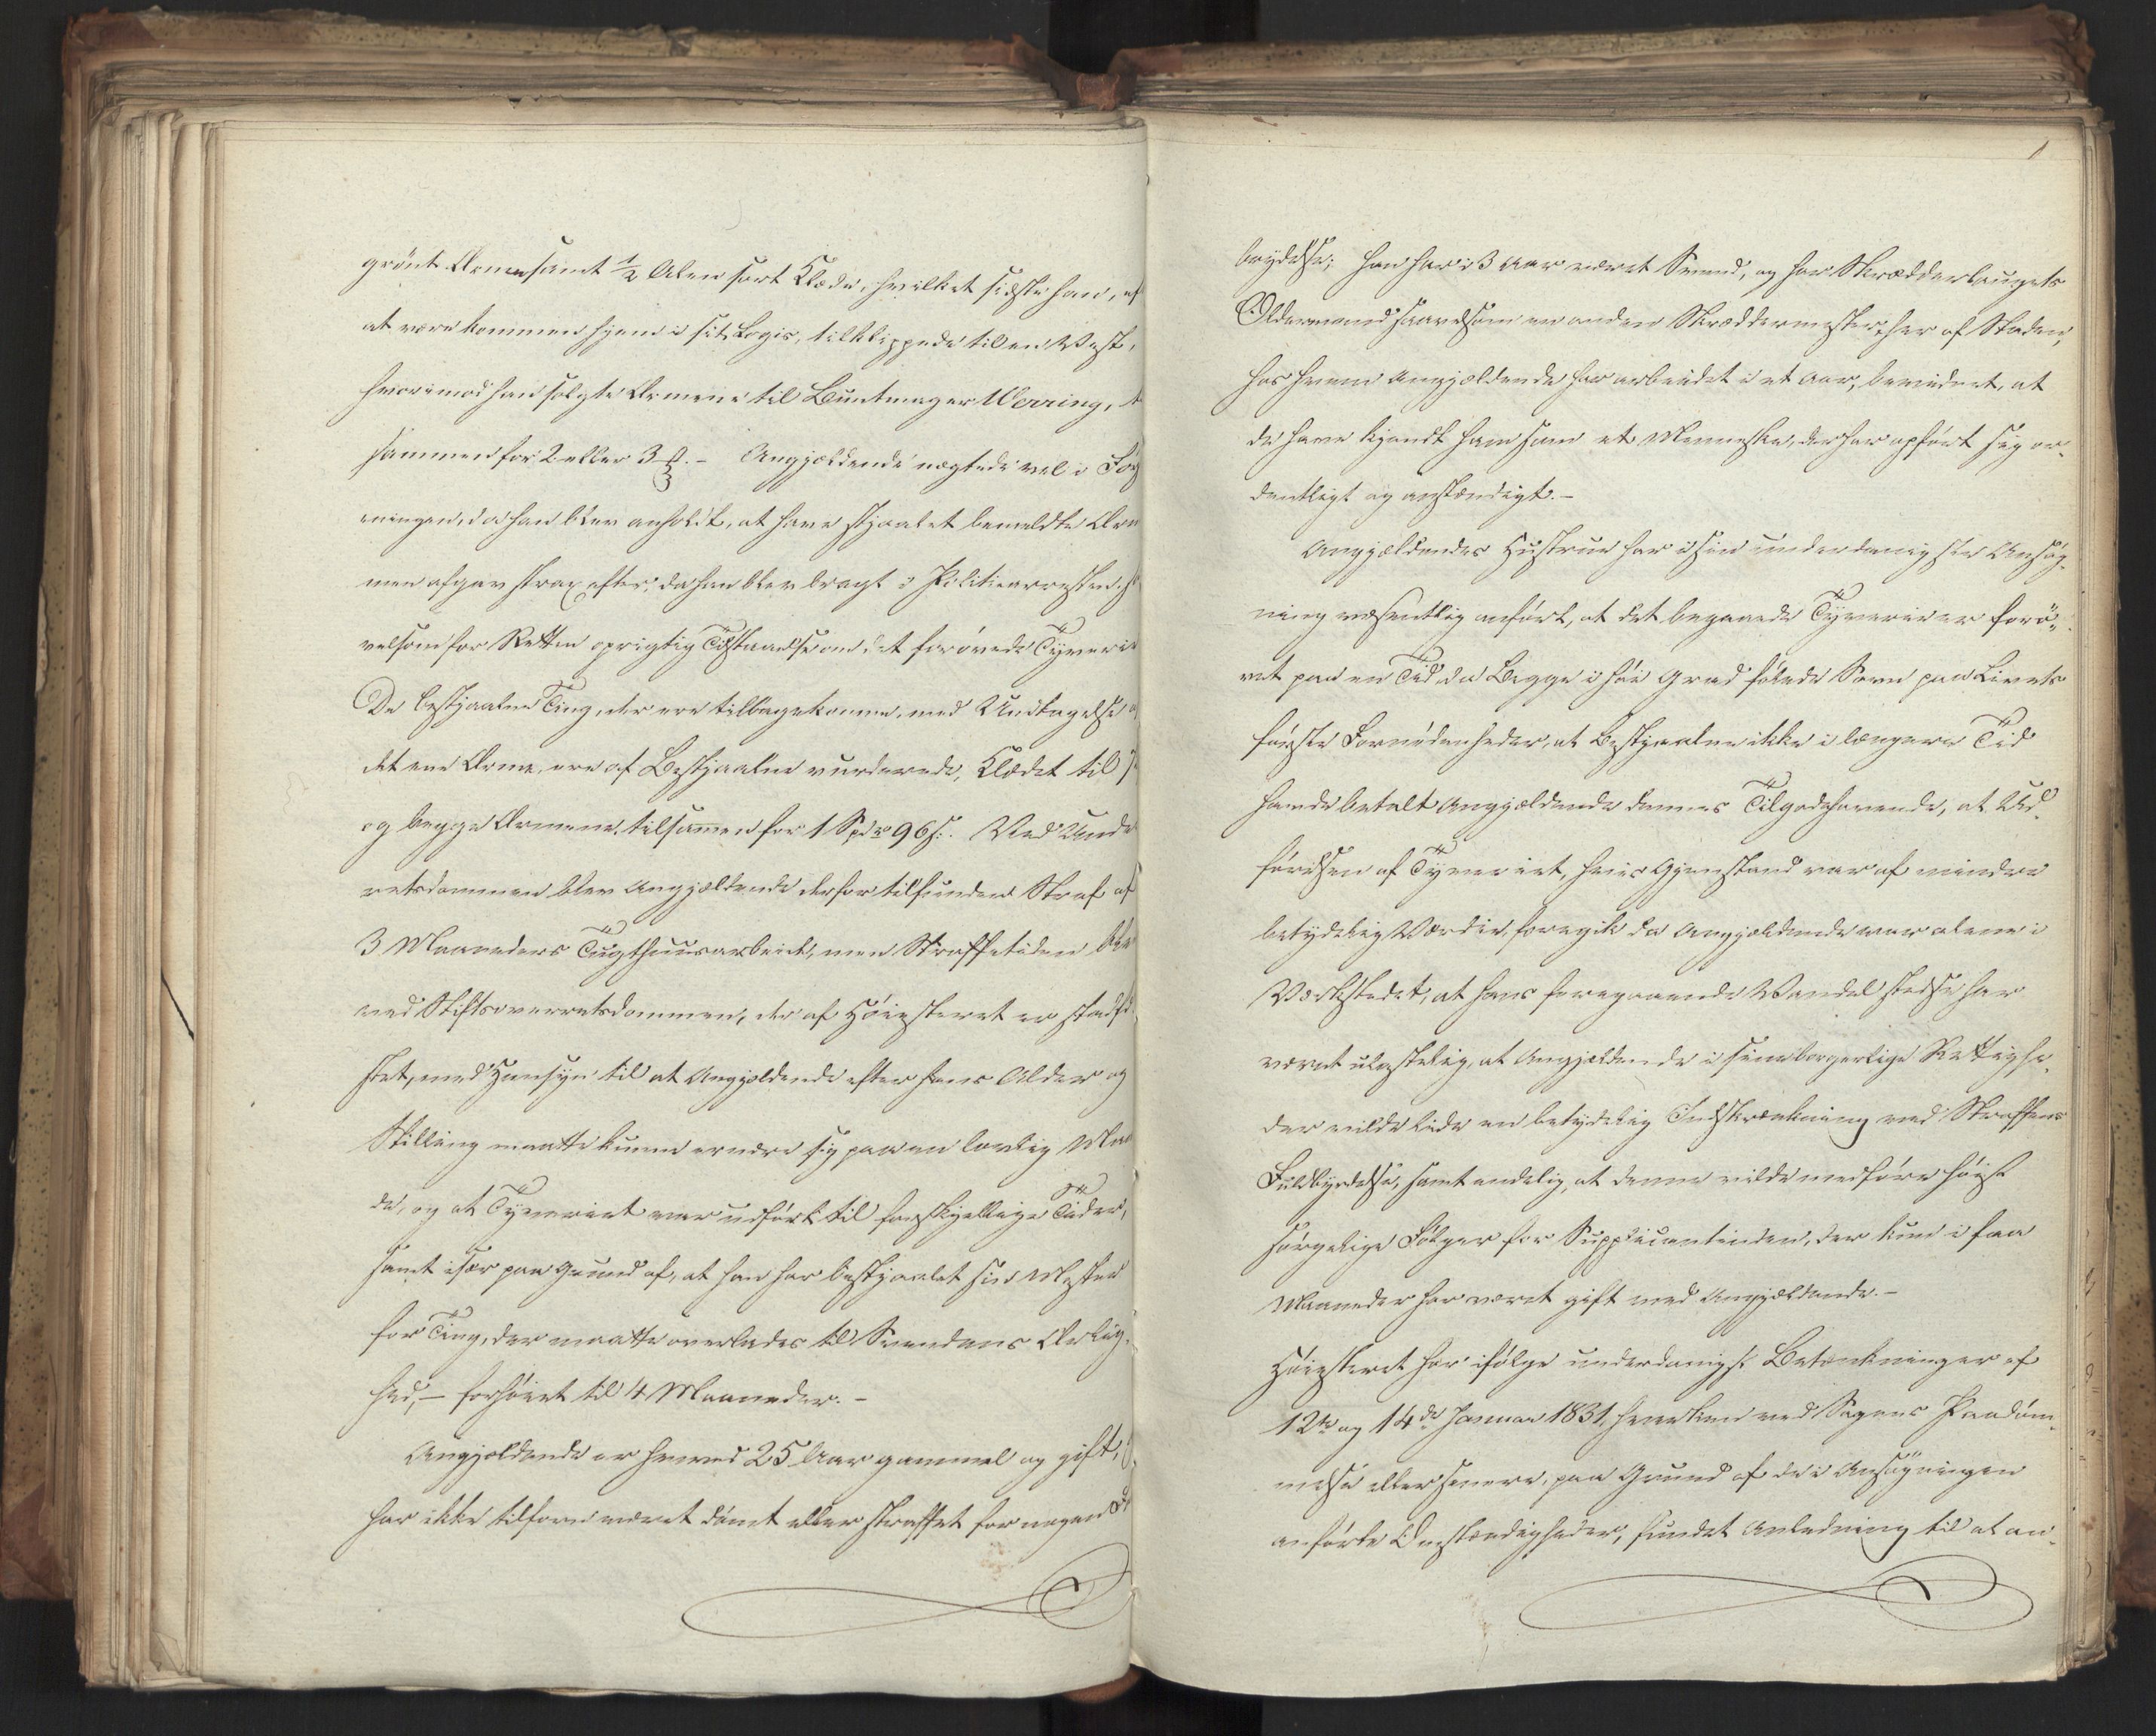 grönt Ærme samt ½ Alen sort Klæde, hvilket sidste han, ef
at være kommen hjem i sit Logis, tilklippede til en Vest,
hvorimod han solgte Ærmene til Buntmager Werring, t
sammen for 2 eller 3 ß. – Angjældende nægtede vel i Fög
eningen, da han blev anholdt, at have stjaalet bemeldte Ærm
men afgav strax efter, da han blev bragt i Politiearresten, s
velsom for Retten oprigtig Tilstaaelse om det forøvede Tyverie
De bestjaalne Ting, der ere tilbagekomne, med Undtagelse a
det ene Ærme, ere af Bestjaalne vurderede, Klædet til
og begge Ærmene tilsammen for 1 Spd 96 ß. Ved Unde
retsdommen blev Angjældende derfor tilfunden Straf af
3 Maaneders Tugthuusarbeide, men Straffetiden ble
ved Stiftsoverretsdommen, der af Høiesteret er stadfæ
stet, med Hensyn til at Angjældende efter hans Alder og
Stilling maatte kunne ernære sig paa en lovlig Maa
de, og at Tyveriet var udført til forskjellige Tider,
samt især paa Grund af, at han har bestjaalet sin Mester
for Ting, der maatte overlades til Svendens Ærlig-
hed, – forhøiet til 4 Maaneder. –
Angjældende er herved 25 Aar gammel og gift,
har ikke tilforn været dømt eller straffet for nogen
brydelse; han har i 3 Aar været Svend, og har Skrædderlaugets
Oldermand saavelsom en anden Skræddermester her af Staden,
hos hvem Angjældende har arbeidet i et Aar, bevidnet, at
de have kjendt ham som et Menneske, der har opført sig or-
dentligt og anstændigt. –
Angjældendes Hustrue har i sin underdanigste Ansøg-
ning væsentlig anført, at det begaaede Tyverie er forø-
vet paa en Tid da Begge i høi Grad følede Savn paa Livets
første Fornødenheder, at Bestjaalne ikke i længere Tid
havde betalt Angjældende dennes Tilgodehavende, at Ud-
førelsen af Tyveriet, hvis Gjenstand var af mindre
betydelig Værdie, foregik da Angjældende var alene i
Værkstedet, at hans foregaaende Vandel stedse har
været ulastelig, at Angjældende i sine borgerlige Rettighe-
der vilde lide en betydelig Indskrænkning ved Straffens
Fuldbyrdelse, samt endelig, at denne vilde medføre høist
sørgelige Følger for Supplicantinden, der kun i faa
Maaneder har været gift med Angjældende. –
Høiesteret har ifølge underdanigst Betænkninger af
12te og 14de Januar 1831, hverken ved Sagens Paadøm-
melse eller senere, paa Grund af de i Ansøgningen
anførte Omstændigheder, fundet Anledning til at an-